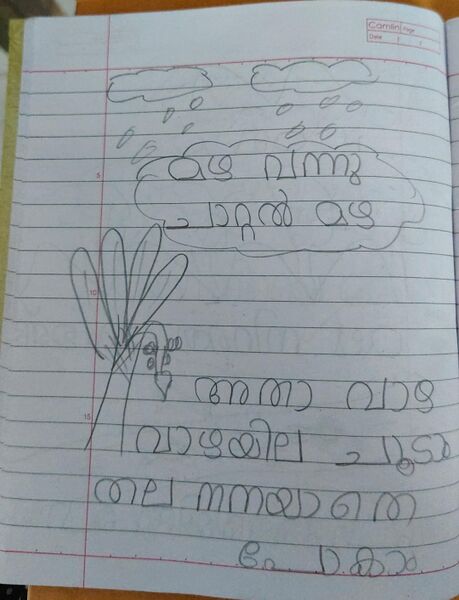 Camlin Page
Date
5
മഴ വന്നു
ചാറ്റൽ മഴ
10
അതാ വാഴ
15
വാഴയില ചൂടാം
തല നനയാതെ
പോകാം